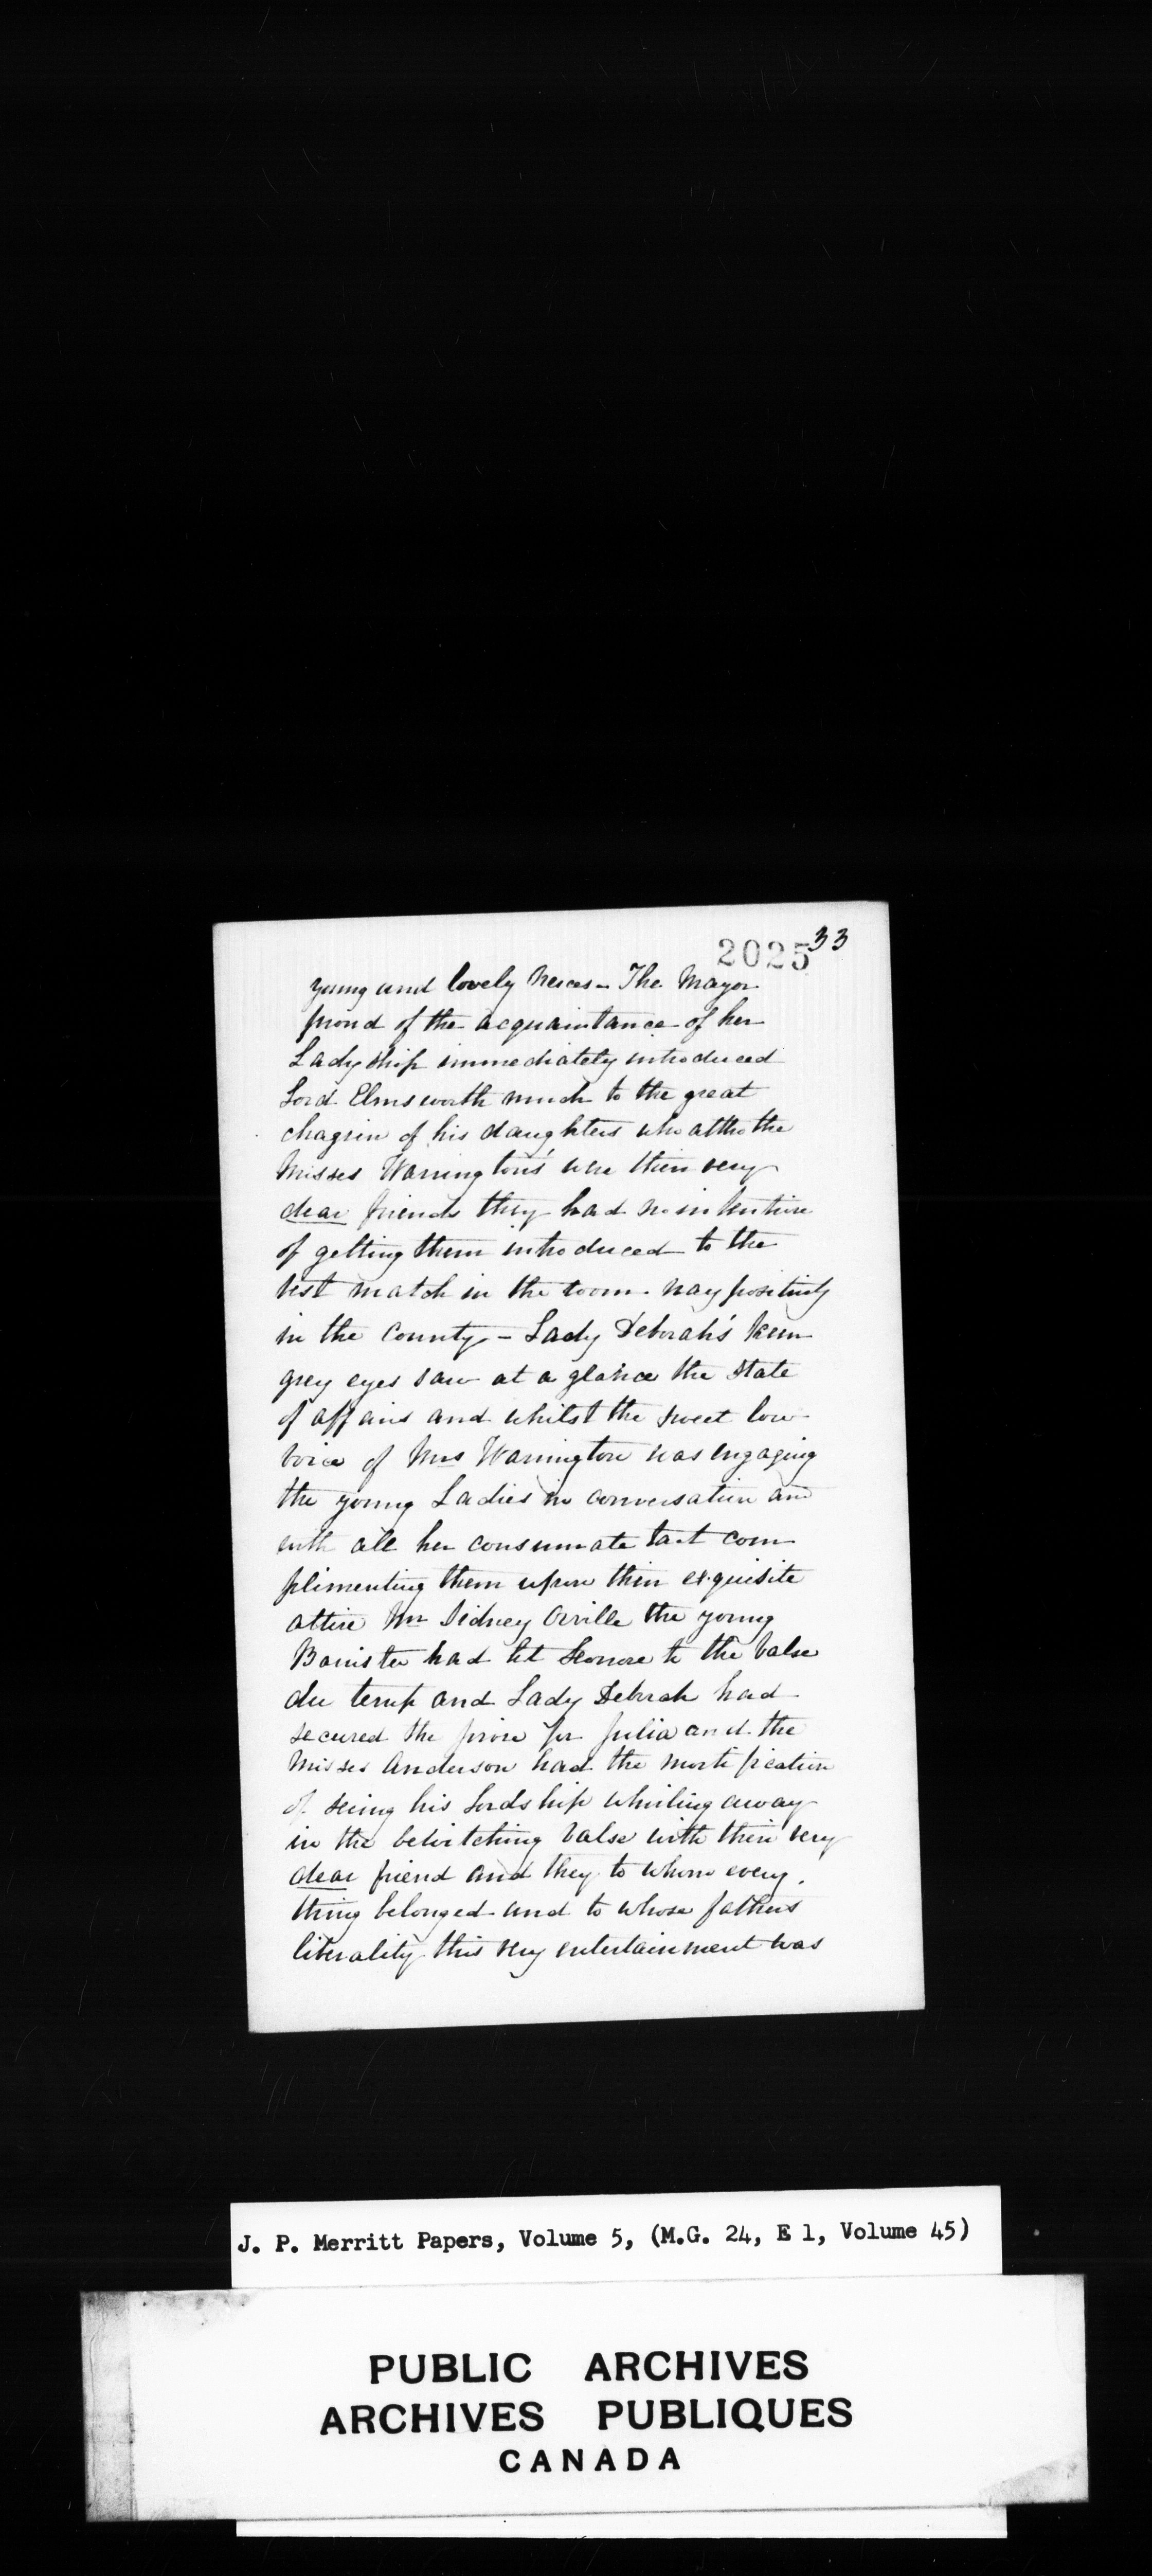 2025 33
young and lovely Neices - The Mayor
proud of the acquaintance of her
Ladyship immediately introduced
Lord Elmsworth much to the great
chagrin of his daughters who altho the
Misses Warrington's were their very
dear friends they had no intention
of getting them introduced to the
best match in the room. nay positively
in the County - Lady Deborah's keen
grey eyes saw at a glance the state
of affairs and whilst the sweet low
voice of Mrs Warrington was engaging
the young Ladies in conversation and
with all her consummate tact com
plimenting them upon their exquisite
attire Mr Sidney Orville the young
Barrister had led Leonore to the valse
du temp and Lady Deborah had
secured the prize for Julia and the
Misses Anderson had the mortification
of seeing his Lordship whirling away
in the bewitching valse with their very
dear friend and they to whom every
thing belonged and to whose fathers
liberality this very entertainment was
J. P. Merritt Papers, Volume 5, (M.G. 24, E 1, Volume 45)
PUBLIC ARCHIVES
ARCHIVES PUBLIQUES
CANADA